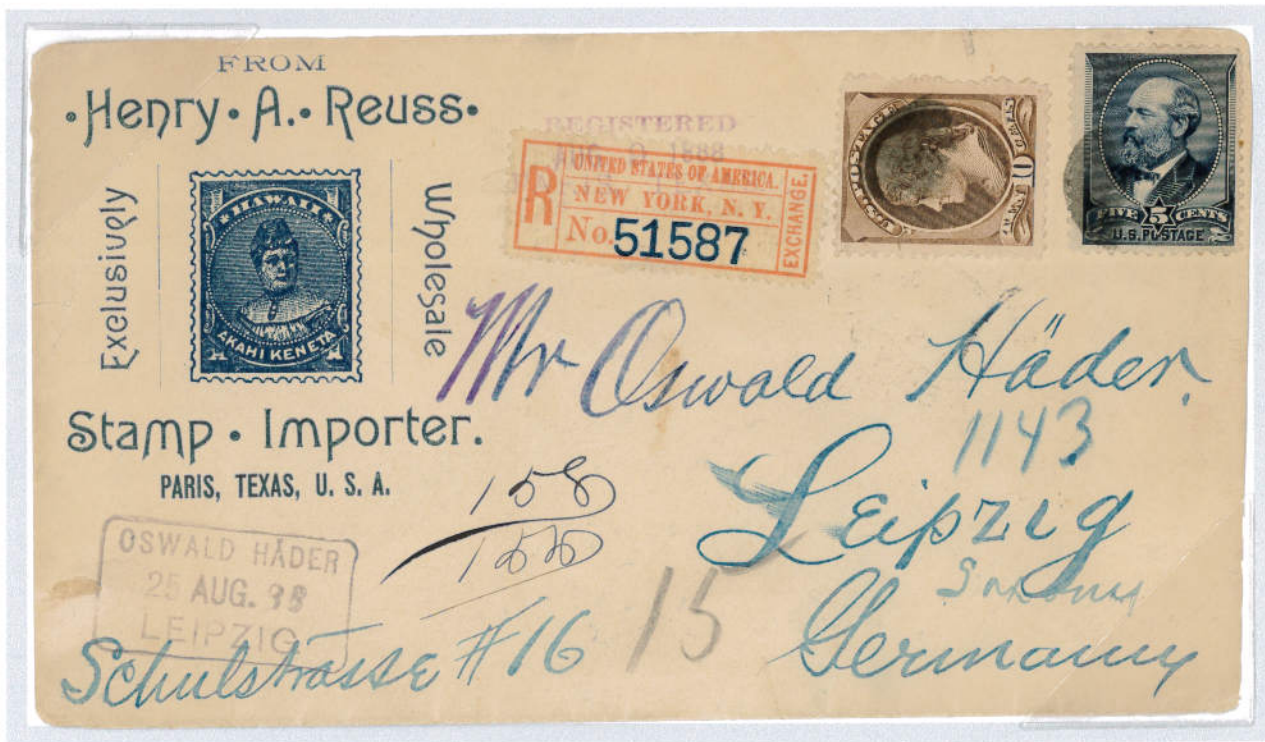 FROM
·Henry·A.·Reuss·
Exelusively
HAWAII
AKAHI KENETA
Wholesale
Stamp·Importer.
PARIS, TEXAS, U. S. A.
REGISTERED
1888
R
UNITED STATES OF AMERICA.
NEW YORK, N. Y.
No. 51587
EXCHANGE.
U.S. POSTAGE
10
FIVE 5 CENTS
U.S. POSTAGE
Mr Oswald Häder.
1143
Leipzig
Germany
158
15
OSWALD HÄDER
25 AUG. 88
LEIPZIG
Schulstrasse #16